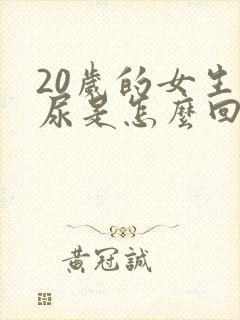 20歲的女生
尿是怎麼回
黃冠誠